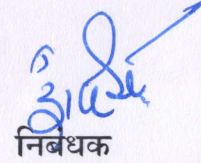 निबंधक